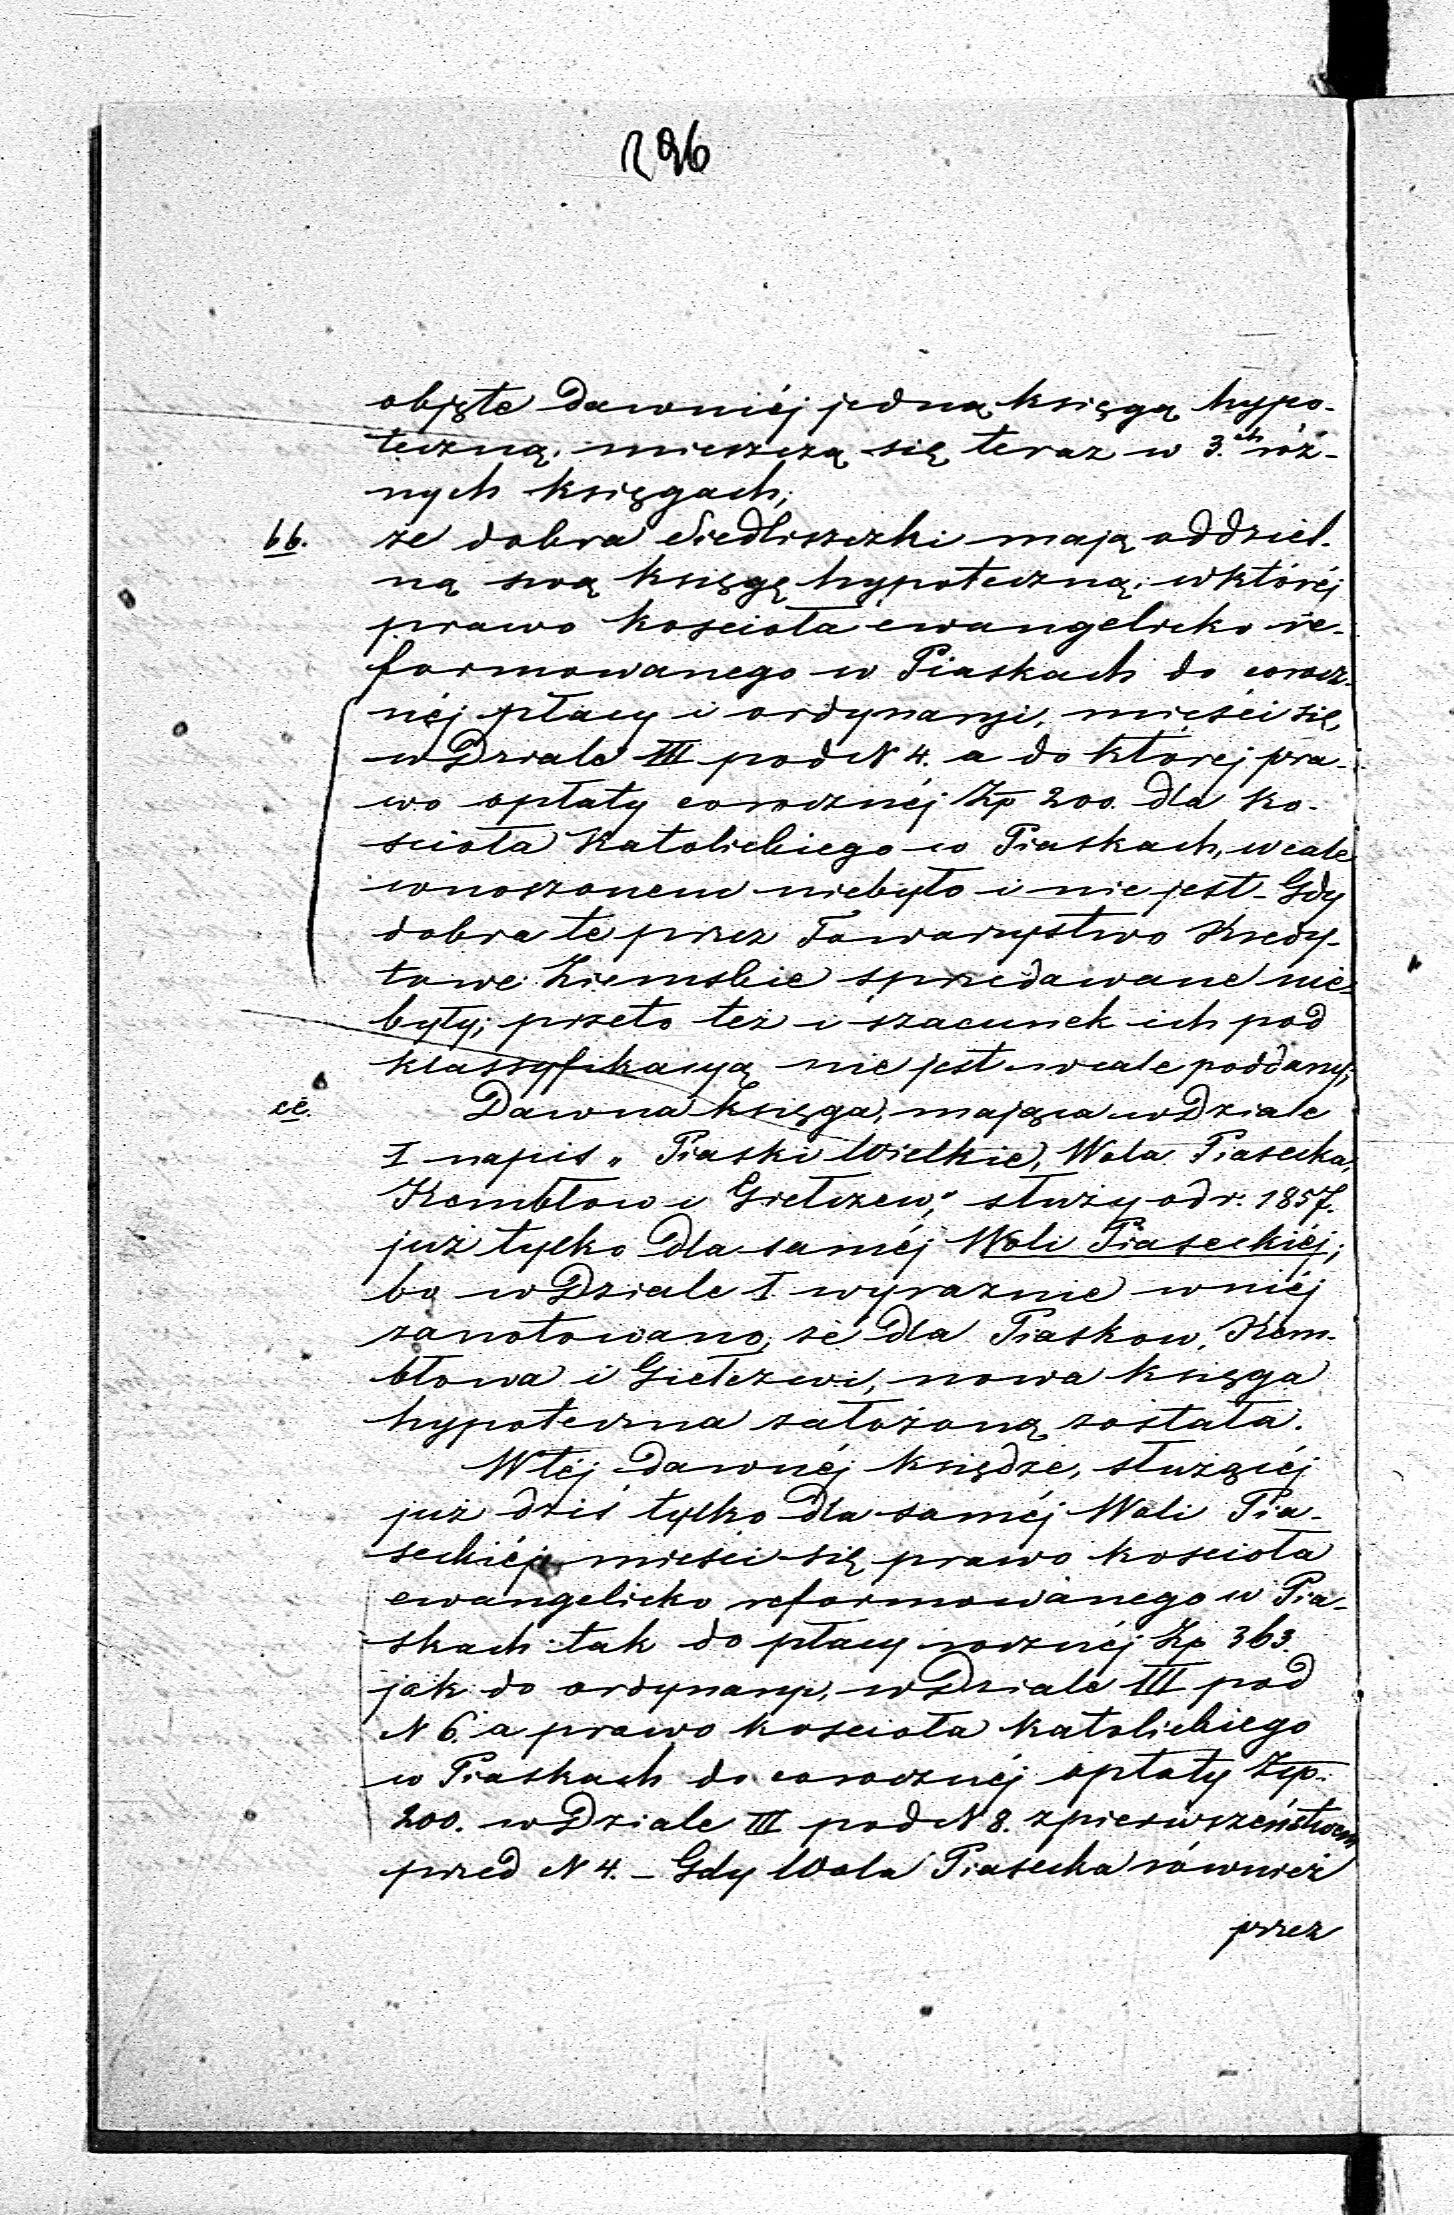 296
objęte dawniéj jedną księgą hypo-
teczną, mieszczą się teraz w 3.ch róż-
nych księgach;
bb. że dobra Siedliszczki mają oddziel-
ną swą księgę hypoteczną, w któréj
prawo kościoła ewangelicko re-
formowanego w Piaskach do corocz-
néj płacy i ordynaryi, mieści się,
w Dziale III pod N 4. a do której pra-
wo opłaty corocznéj Złp 200. dla ko-
ścioła Katolickiego w Piaskach, wcale
wnoszonem niebyło i nie jest - Gdy
dobra te przez Towarzystwo Kredy-
towe Ziemskie sprzedawane nie
były; przeto też i szacunek ich pod
klassyfikacyą nie jest wcale poddany;
cc. Dawna księga, mająca w Dziale
I napis „Piaski Wielkie, Wola Piasecka,
Kembłow i Giełczew," służy od r. 1857.
już tylko dla saméj Woli Piaseckiéj;
bo w Dziale I wyraznie w niéj
zanotowano, że dla Piaskow, Kem-
błowa i Giełczwi, nowa księga
hypoteczna założoną została.
W téj dawnéj księdze, służącéj
już dziś tylko dla saméj Woli Pia-
seckiéj mieści się prawo kościoła
ewangelicko reformowanego w Pia-
skach tak do płacy rocznéj Złp 363.
jak do ordynaryi, w Dziale III pod
N 6. a prawo kościoła katolickiego
w Piaskach do corocznéj opłaty Złp.
200. w Dziale III pod N 8. z pierwszeństwem
przed N 4. - Gdy Wola Piasecka również
przez